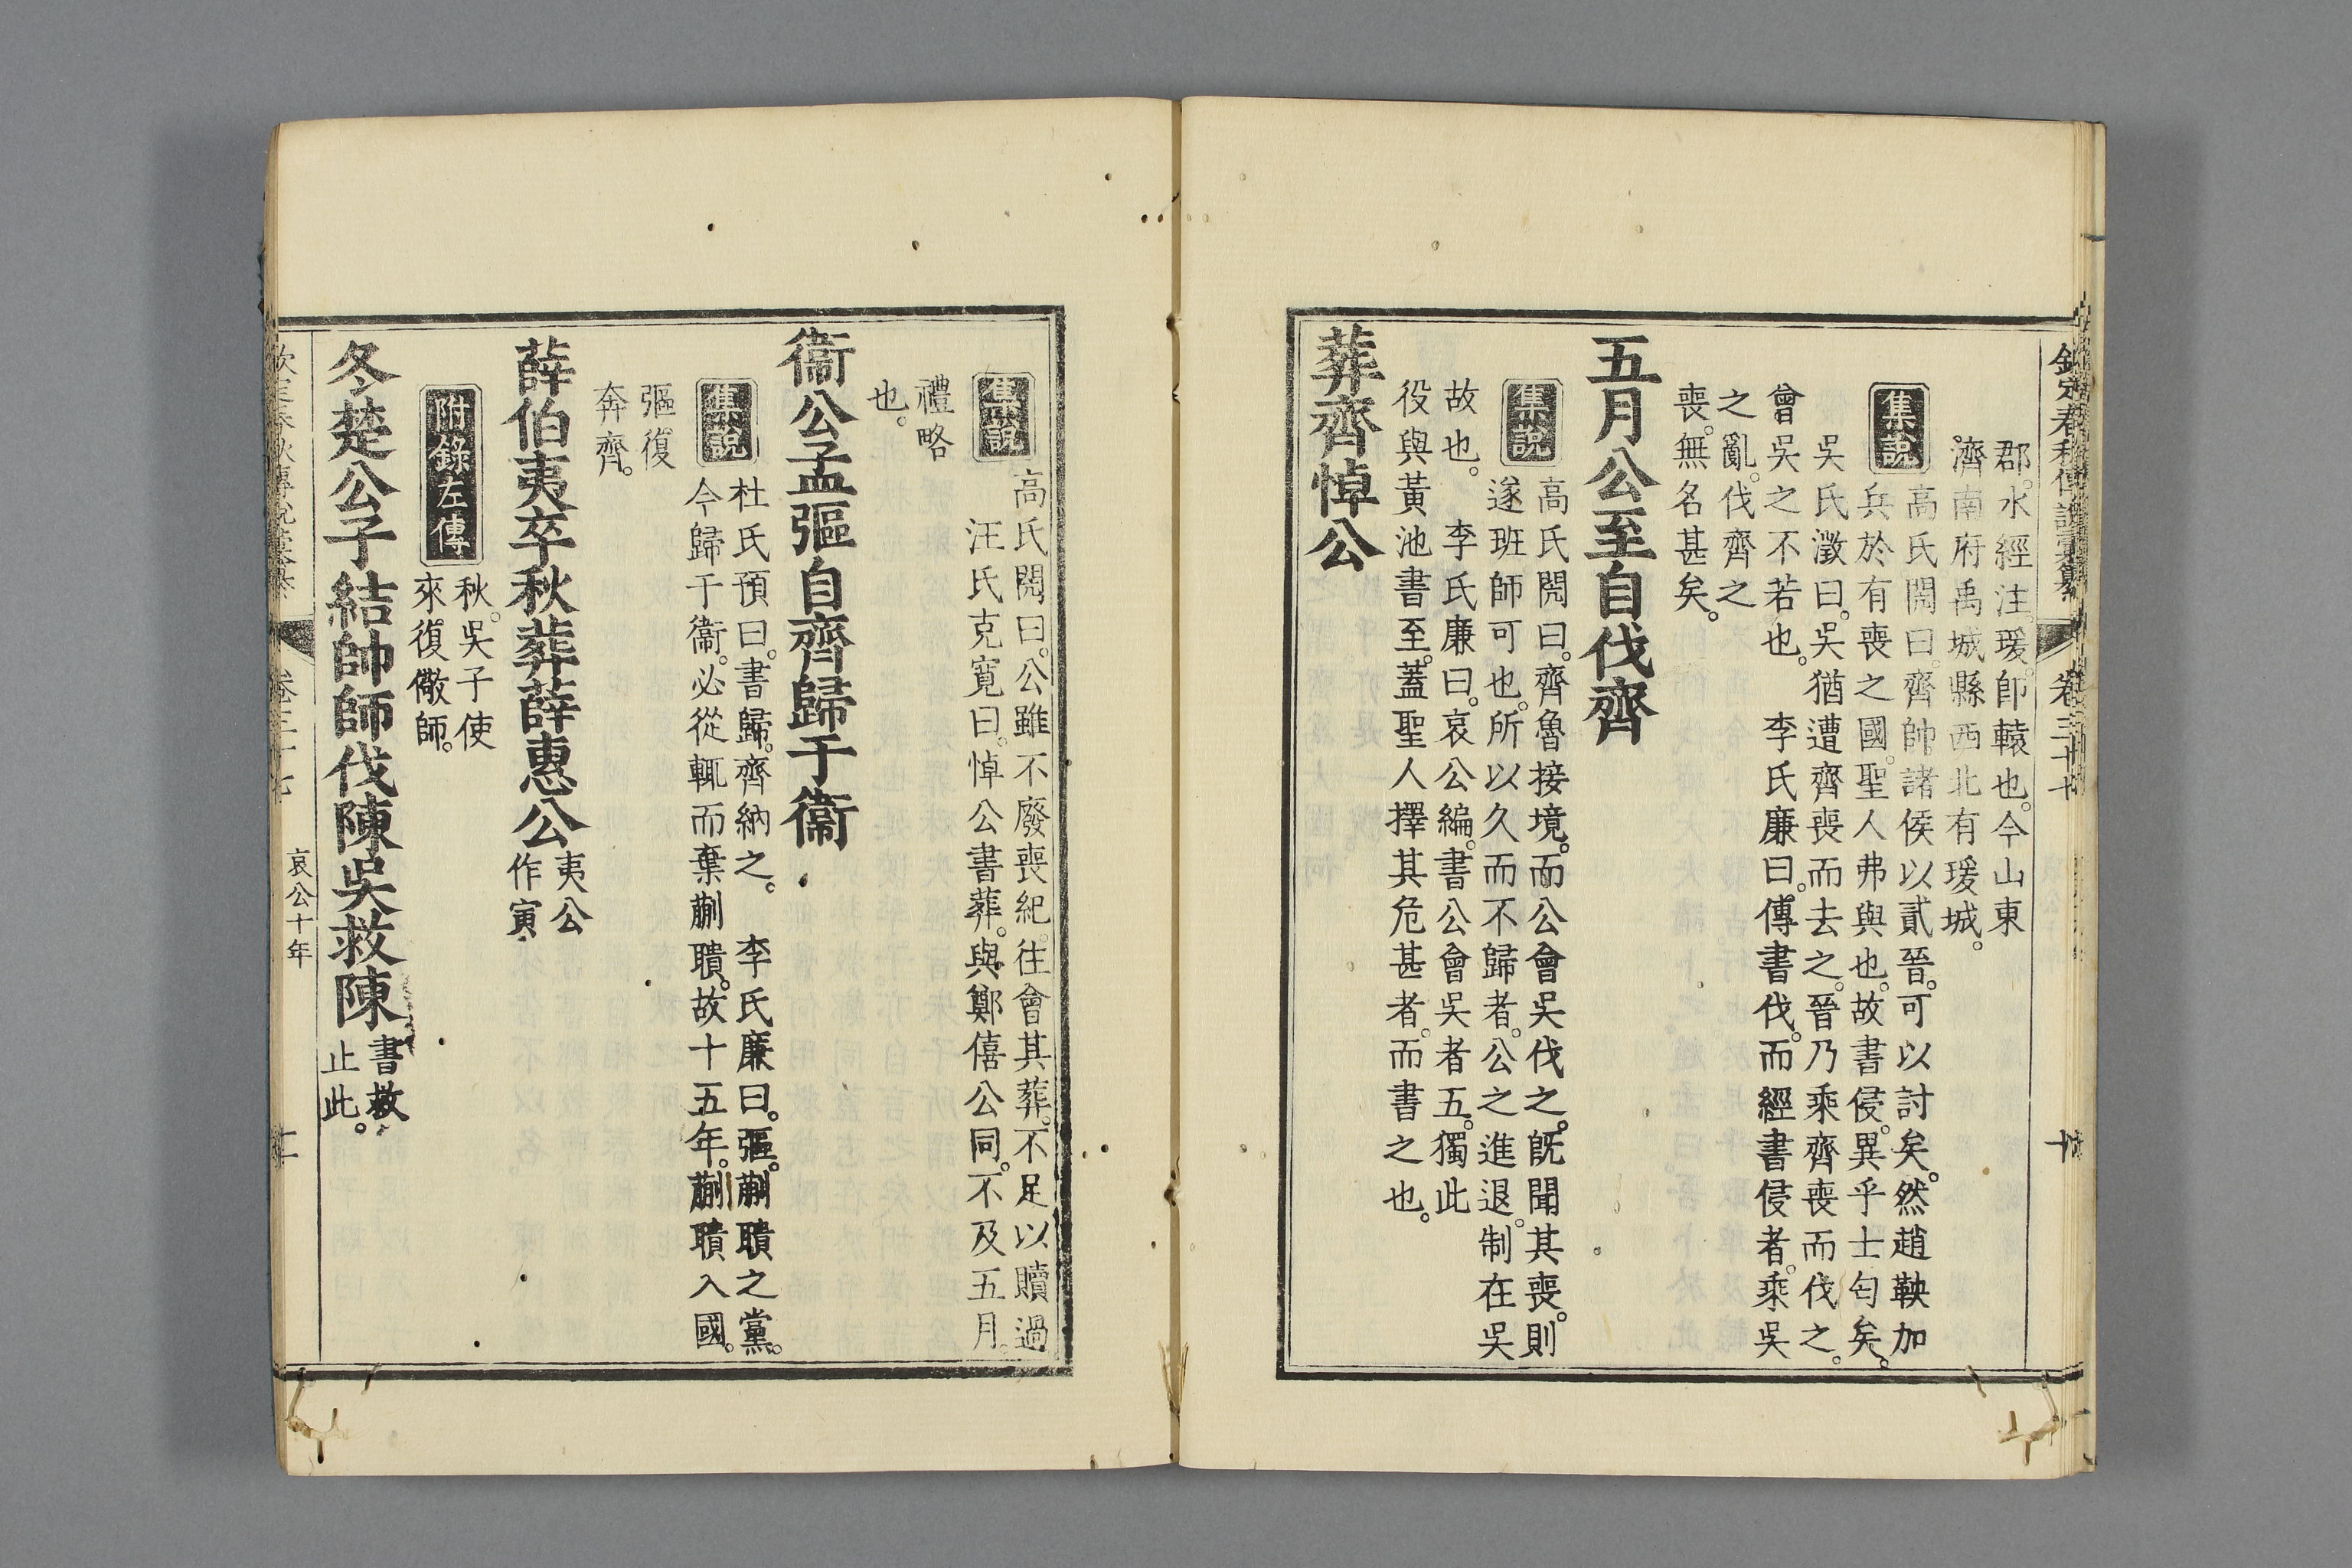 欽定春秋傳說彙纂 卷三十七
郡。水經注。瑗。卽轅也。今山東
濟南府禹城縣西北有瑗城。
集說
高氏閌曰。齊帥諸侯以貳晉。可以討矣。然趙鞅加
兵於有喪之國。聖人弗與也。故書侵。異乎士匄矣。
吳氏澂曰。吳猶遭齊喪而去之。晉乃乘齊喪而伐之。
曾吳之不若也。 李氏廉曰。傳書伐。而經書侵者。乘吳
之亂。伐齊之
喪。無名甚矣。
五月公至自伐齊
集說
高氏閌曰。齊魯接境。而公會吳伐之。旣聞其喪。則
遂班師可也。所以久而不歸者。公之進退。制在吳
故也。 李氏廉曰。哀公編。書公會吳者五。獨此
役與黃池書至。蓋聖人擇其危甚者。而書之也。
葬齊悼公
集說
高氏閌曰。公雖不廢喪紀。往會其葬。不足以贖過
汪氏克寬曰。悼公書葬。與鄭僖公同。不及五月。
禮略
也。
衞公孟彄自齊歸于衞
集說
杜氏預曰。書歸。齊納之。 李氏廉曰。彄。蒯聵之黨。
今歸于衞。必從輒而棄蒯聵。故十五年。蒯聵入國。
彄復
奔齊。
薛伯夷卒秋葬薛惠公
夷公
作寅
附錄左傳
秋。吳子使
來。復儆師。
冬楚公子結帥師伐陳吳救陳
書救
止此。
欽定春秋傳說彙纂 卷三十七 哀公十年 十一